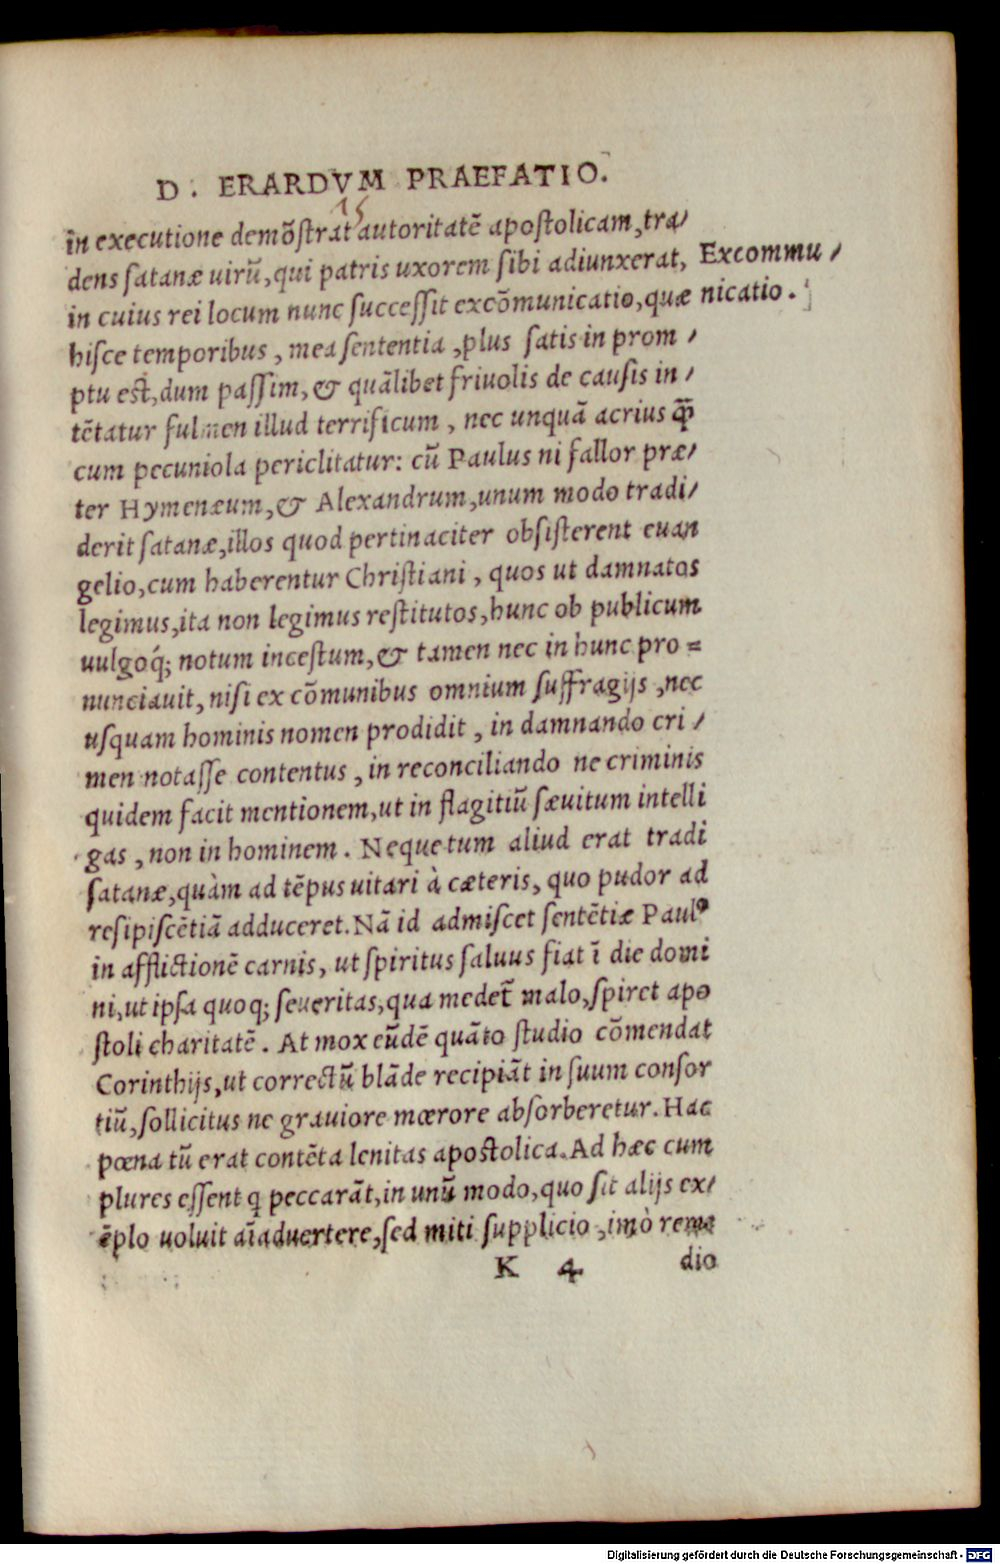 D. ERARDVM PRAEFATIO.
15
in executione demõſtrat autoritatẽ apoſtolicam, tra/
dens ſatanæ uirũ, qui patris uxorem ſibi adiunxerat,
Excommu/
nicatio.
in cuius rei locum nunc ſucceſſit excõmunicatio, quæ
hiſce temporibus, mea ſententia, plus ſatis in prom/
ptu eſt, dum paſſim, & quãlibet friuolis de cauſis in/
tẽtatur fulmen illud terrificum, nec unquã acrius q̃
cum pecuniola periclitatur: cũ Paulus ni fallor præ/
ter Hymenæum, & Alexandrum, unum modo tradi/
derit ſatanæ, illos quod pertinaciter obſiſterent euan
gelio, cum haberentur Chriſtiani, quos ut damnatos
legimus, ita non legimus reſtitutos, hunc ob publicum
uulgoq́; notum inceſtum, & tamen nec in hunc pro=
nunciauit, niſi ex cõmunibus omnium ſuffragijs, nec
uſquam hominis nomen prodidit, in damnando cri/
men notaſſe contentus, in reconciliando ne criminis
quidem facit mentionem, ut in flagitiũ ſæuitum intelli
gas, non in hominem. Neque tum aliud erat tradi
ſatanæ, quàm ad tẽpus uitari à cæteris, quo pudor ad
reſipiſcẽtiã adduceret. Nã id admiſcet ſentẽtiæ Paulꝰ
in afflictionẽ carnis, ut ſpiritus ſaluus fiat ĩ die domi
ni, ut ipſa quoq; ſeueritas, qua medet̃ malo, ſpiret apo
ſtoli charitatẽ. At mox eũdẽ quãto ſtudio cõmendat
Corinthijs, ut correctũ blãde recipiãt in ſuum conſor
tiũ, ſollicitus ne grauiore mœrore abſorberetur. Hac
pœna tũ erat contẽta lenitas apoſtolica. Ad hæc cum
plures eſſent q̃ peccarãt, in unũ modo, quo ſit alijs ex/
ẽplo uoluit aĩaduertere, ſed miti ſupplicio, imò reme
K 4
dio
Digitalisierung gefördert durch die Deutsche Forschungsgemeinschaft - DFG